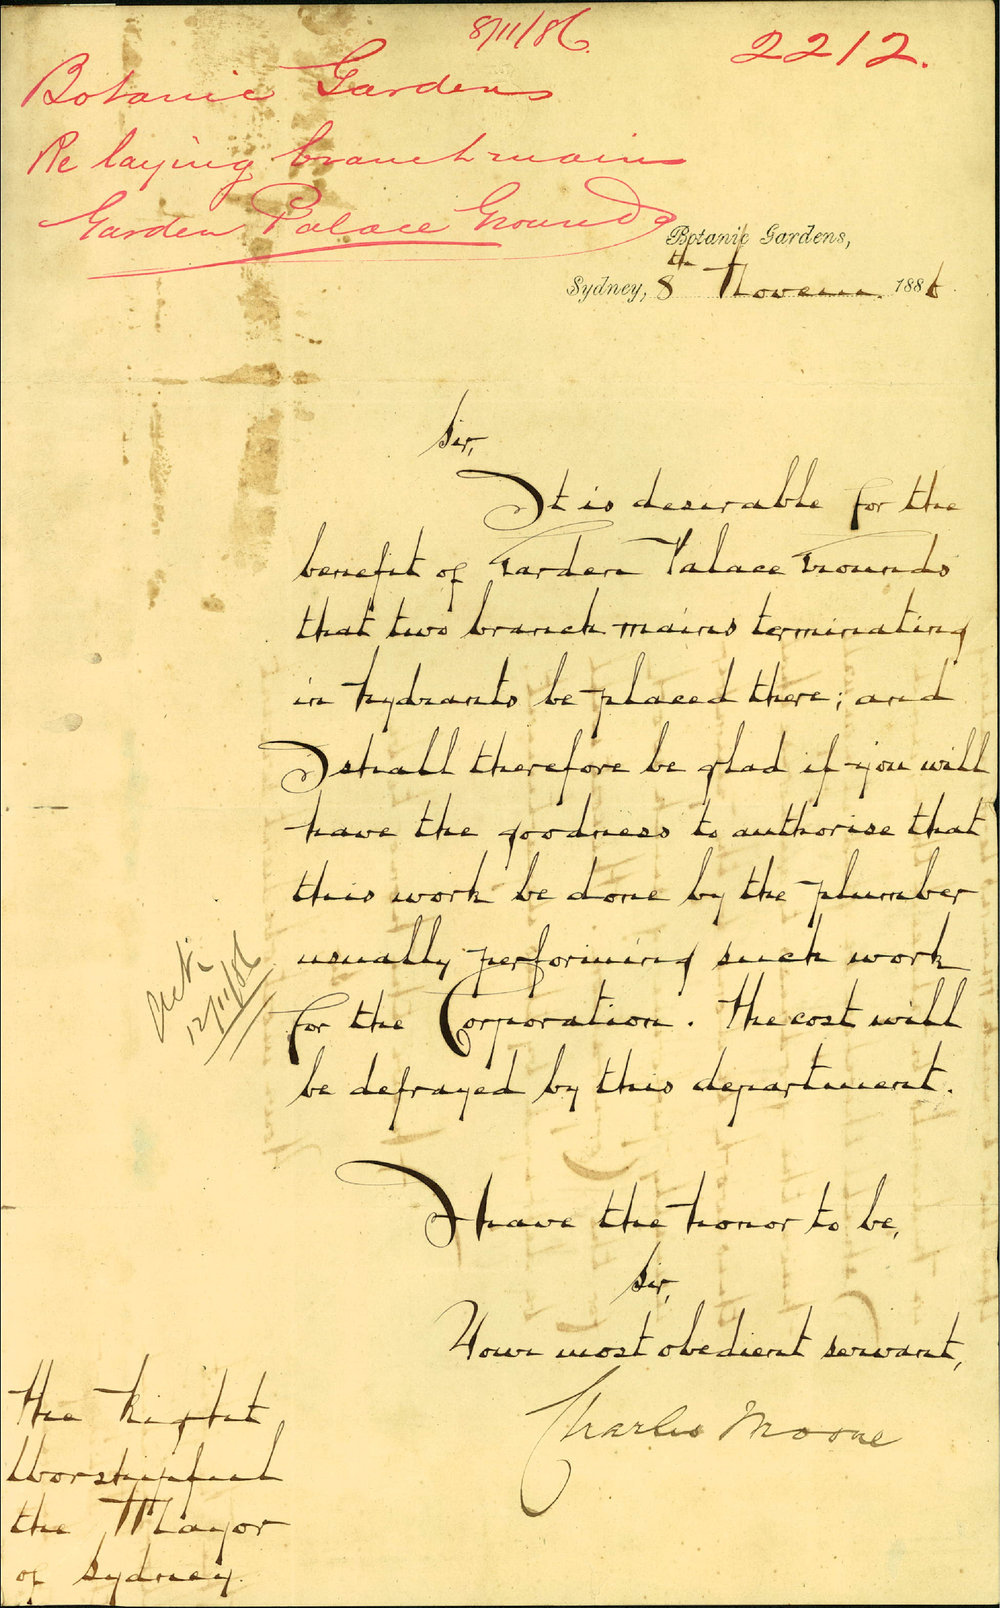 8/11/86.
2212.
Botanic Gardens
Re laying branch mains
Garden Palace Grounds
Botanic Gardens,
Sydney, 8th Novem. 1886
Sir,
It is desirable for the
benefit of Garden Palace Grounds
that two branch mains terminating
in hydrants be placed there; and
I shall therefore be glad if you will
have the goodness to authorise that
this work be done by the plumber
usually performing such work
for the Corporation. The cost will
be defrayed by this department.
12/11/86
I have the honor to be,
Sir,
Your most obedient servant,
Charles Moore
The Right
Worshipful
the Mayor
of Sydney.